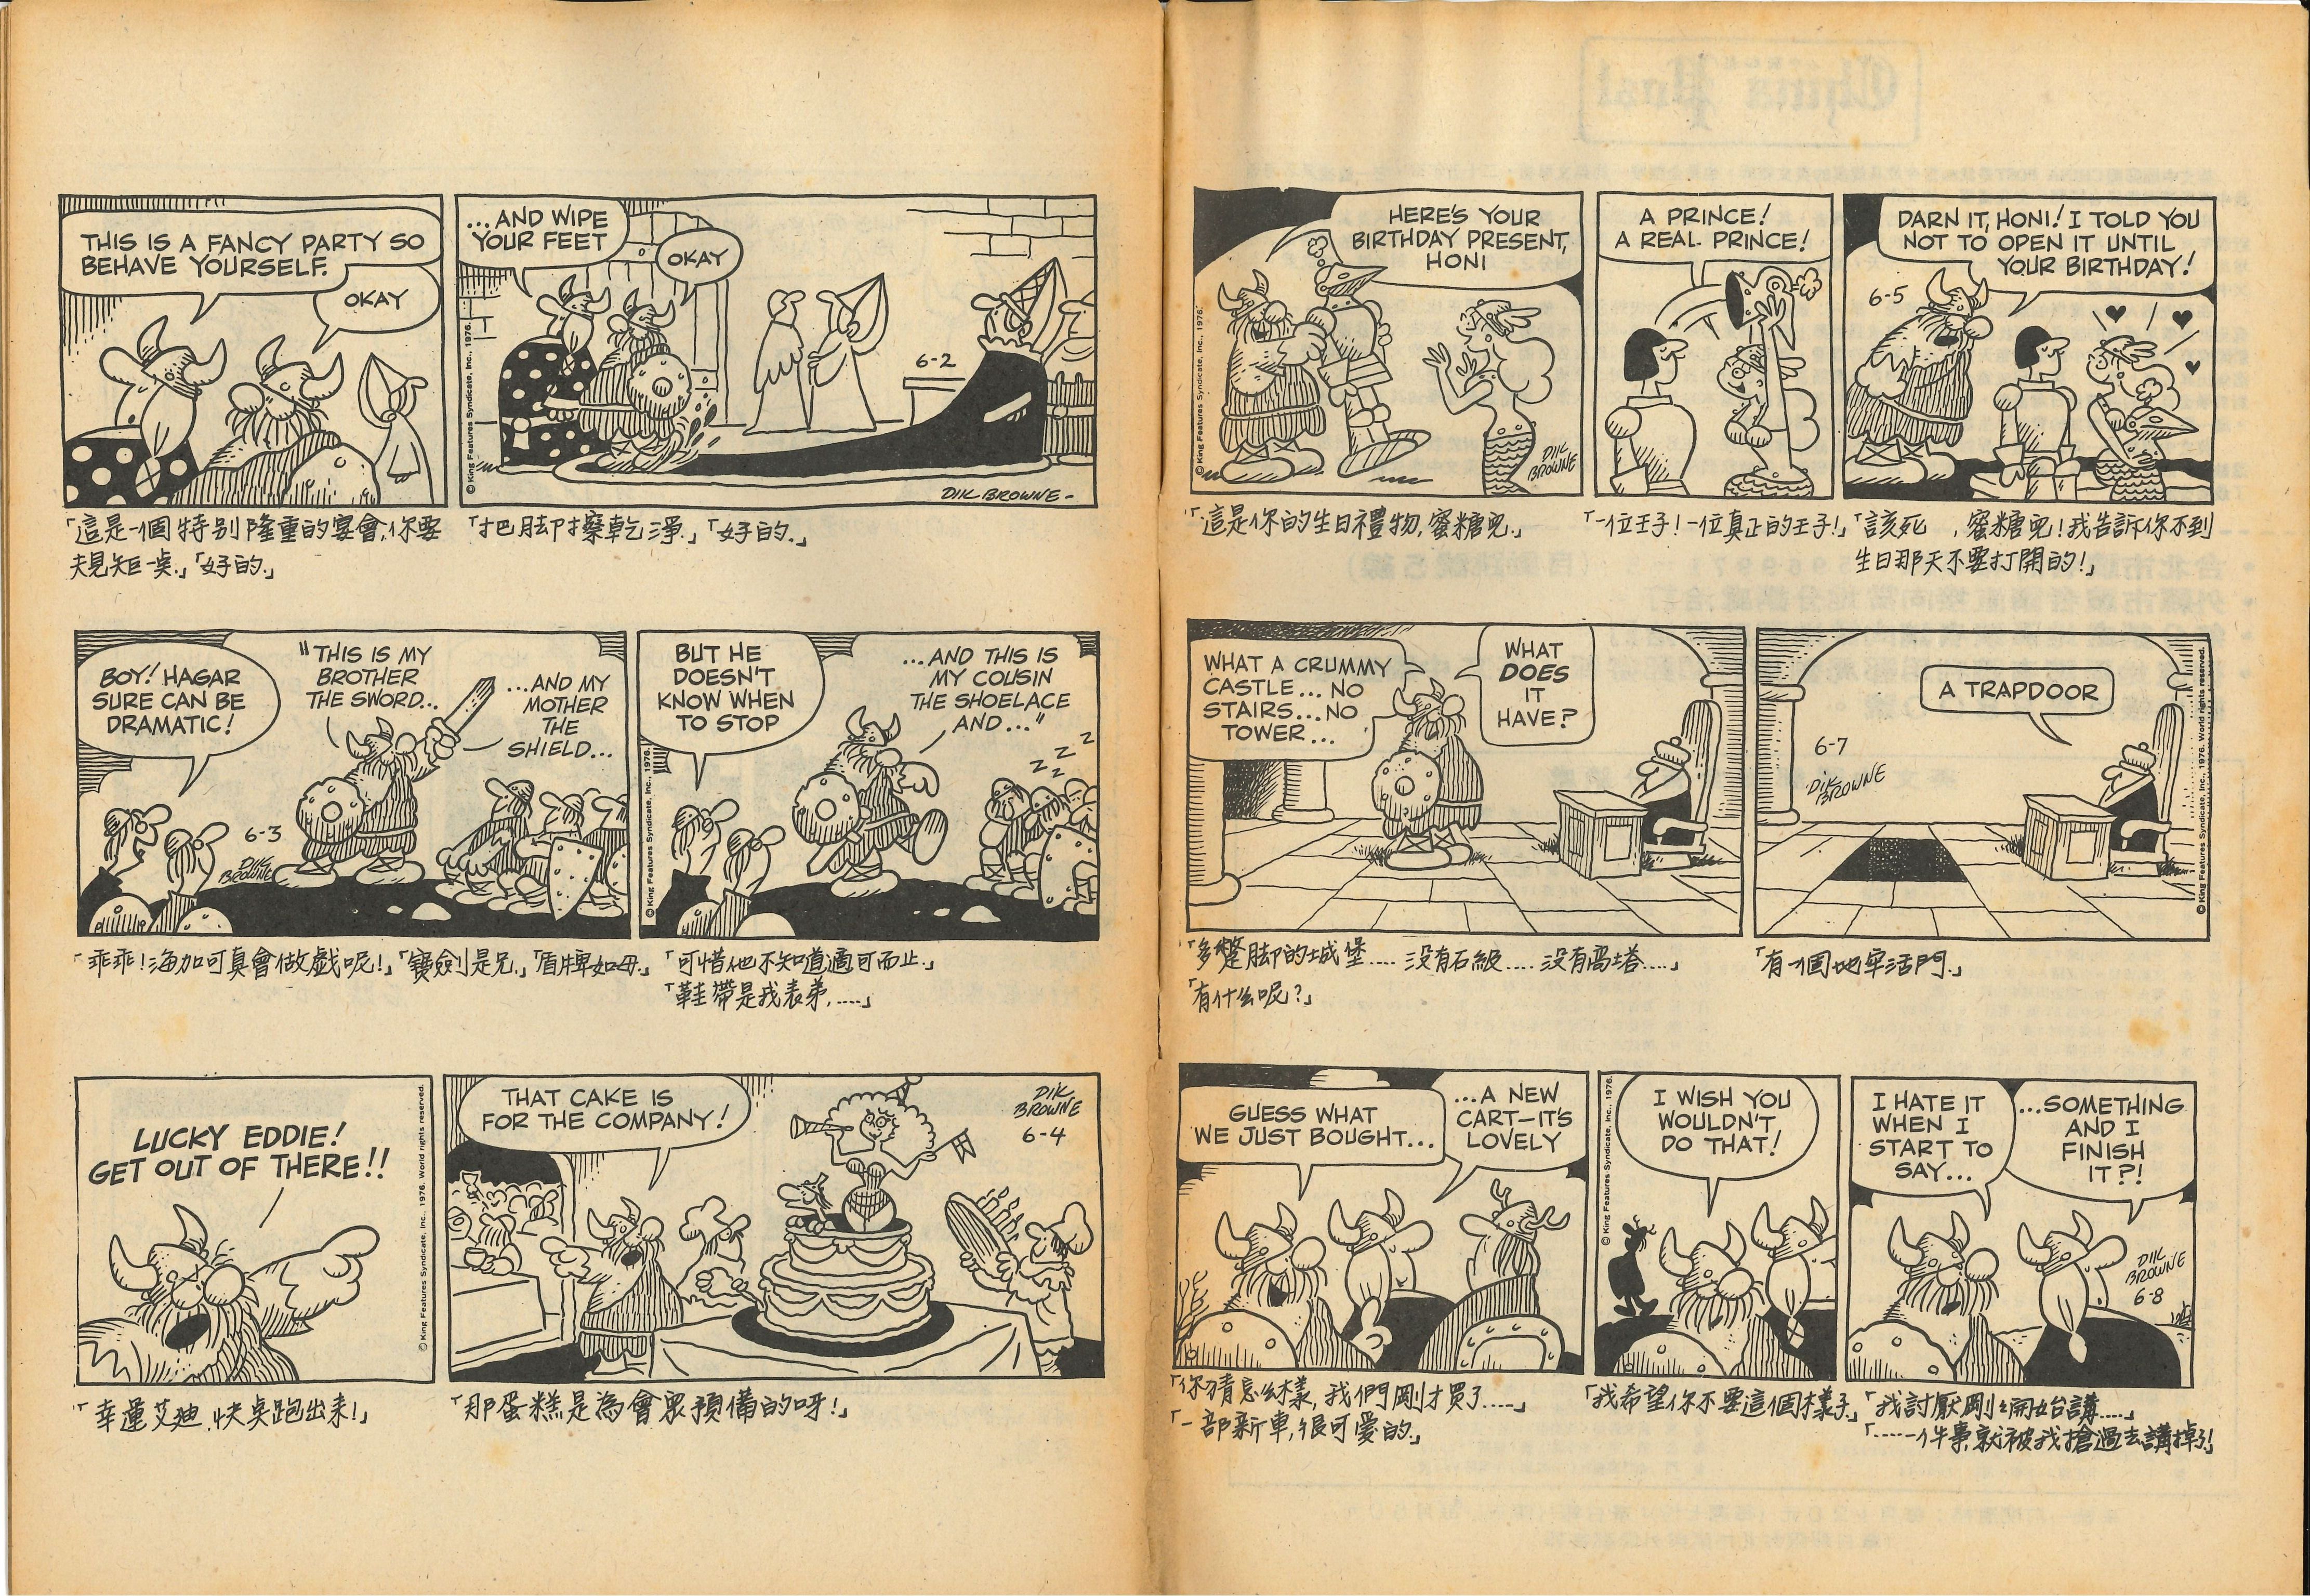 THIS IS A FANCY PARTY SO
BEHAVE YOURSELF.
OKAY
...AND WIPE
YOUR FEET
OKAY
6-2
© King Features Syndicate, Inc., 1976.
DIK BROWNE-
「這是一個特别隆重的宴會,你要
規矩一點.」「好的.」
「把脚擦乾淨.」「好的.」
BOY! HAGAR
SURE CAN BE
DRAMATIC!
"THIS IS MY
BROTHER
THE SWORD...
...AND MY
MOTHER
THE
SHIELD...
6-3
DIK
BROWNE
BUT HE
DOESN'T
KNOW WHEN
TO STOP
...AND THIS IS
MY COUSIN
THE SHOELACE
AND..."
Z Z Z Z
© King Features Syndicate, Inc., 1976.
「乖乖!海加可真會做戲呢!」「寶劍是兄.」「盾牌如母.」
「可惜他不知道適可而止.」
「鞋帶是我表弟,....」
LUCKY EDDIE!
GET OUT OF THERE!!
© King Features Syndicate, Inc., 1976. World rights reserved.
THAT CAKE IS
FOR THE COMPANY!
DIK
BROWNE
6-4
「幸運艾迪,快點跑出来!」
「那蛋糕是為會眾預備的呀!」
HERE'S YOUR
BIRTHDAY PRESENT,
HONI
© King Features Syndicate, Inc., 1976.
DIK
BROWNE
A PRINCE!
A REAL PRINCE!
DARN IT, HONI! I TOLD YOU
NOT TO OPEN IT UNTIL
YOUR BIRTHDAY!
6-5
「這是你的生日禮物,蜜糖兒.」
「一位王子!一位真正的王子!」
「該死,蜜糖兒!我告訴你不到
生日那天不要打開的!」
WHAT A CRUMMY
CASTLE... NO
STAIRS...NO
TOWER...
WHAT
DOES
IT
HAVE?
A TRAPDOOR
6-7
DIK
BROWNE
© King Features Syndicate, Inc., 1976. World rights reserved.
「多蹩脚的城堡.... 没有石級.... 没有高塔....」
「有什么呢?」
「有一個地牢活門.」
GUESS WHAT
WE JUST BOUGHT...
...A NEW
CART—IT'S
LOVELY
© King Features Syndicate, Inc., 1976.
I WISH YOU
WOULDN'T
DO THAT!
I HATE IT
WHEN I
START TO
SAY...
...SOMETHING
AND I
FINISH
IT?!
DIK
BROWNE
6-8
「你猜怎么樣,我們剛才買了....」
「一部新車,很可愛的.」
「我希望你不要這個樣子.」
「我討厭剛開始講....」
「.....一件事,就被我搶過去講掉了!」